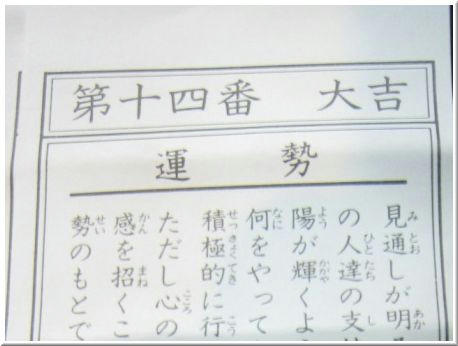 第十四番 大吉
運勢
見通しが明
の人達の支
陽が輝くよ
何をやって
積極的に行
ただし心の
感を招くこ
勢のもとで